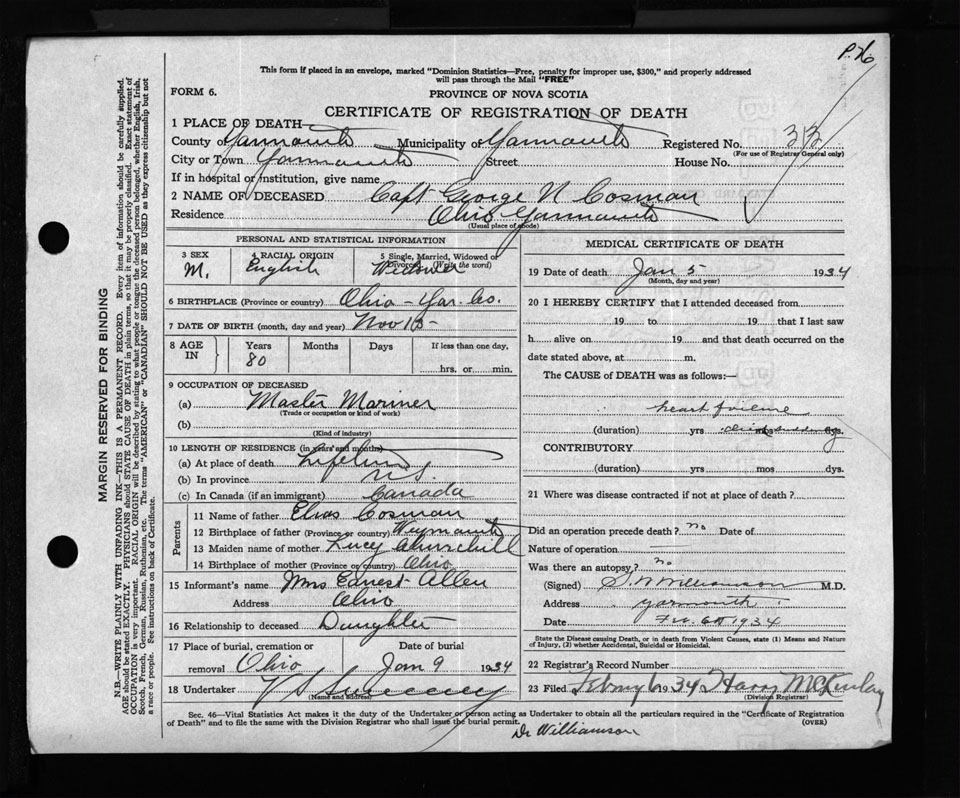 P. 76
This form if placed in an envelope, marked "Dominion Statistics—Free, penalty for improper use, $300," and properly addressed
will pass through the Mail "FREE"
FORM 6.
PROVINCE OF NOVA SCOTIA
CERTIFICATE OF REGISTRATION OF DEATH
1 PLACE OF DEATH
County of Yarmouth Municipality of Yarmouth Registered No. 313
(For use of Registrar General only)
City or Town Yarmouth Street House No.
If in hospital or institution, give name
2 NAME OF DECEASED Capt George N Cosman
Residence Ohio Yarmouth
(Usual place of abode)
PERSONAL AND STATISTICAL INFORMATION
3 SEX 4 RACIAL ORIGIN 5 Single, Married, Widowed or
Divorced (Write the word)
M. English Widower
6 BIRTHPLACE (Province or country) Ohio - Yar. Co.
7 DATE OF BIRTH (month, day and year) Nov 15-
8 AGE IN Years Months Days If less than one day,
80 hrs. or min.
9 OCCUPATION OF DECEASED
(a) Master Mariner
(Trade or occupation or kind of work)
(b)
(Kind of industry)
10 LENGTH OF RESIDENCE (in years and months)
(a) At place of death Lifetime
(b) In province N.S.
(c) In Canada (if an immigrant) Canada
Parents
11 Name of father Elias Cosman
12 Birthplace of father (Province or country) Weymouth
13 Maiden name of mother Lucy Churchill
14 Birthplace of mother (Province or country) Ohio
15 Informant's name Mrs Earnest Allen
Address Ohio
16 Relationship to deceased Daughter
17 Place of burial, cremation or Date of burial
removal Ohio Jan 9 1934
18 Undertaker V S Sweeney
(Name and address)
MEDICAL CERTIFICATE OF DEATH
19 Date of death Jan 5 1934
(Month, day and year)
20 I HEREBY CERTIFY that I attended deceased from
19 to 19 that I last saw
h alive on 19 and that death occurred on the
date stated above, at m.
The CAUSE of DEATH was as follows:—
heart failure
(duration) yrs mos dys.
CONTRIBUTORY
(duration) yrs mos dys.
21 Where was disease contracted if not at place of death?
Did an operation precede death? no Date of
Nature of operation
Was there an autopsy? no
(Signed) S. W Williamson M.D.
Address Yarmouth
Date 1934
State the Disease causing Death, or in death from Violent Causes, state (1) Means and Nature
of Injury, (2) whether Accidental, Suicidal or Homicidal.
22 Registrar's Record Number
23 Filed 6 1934 Harry McKinlay
(Division Registrar)
Sec. 46—Vital Statistics Act makes it the duty of the Undertaker or person acting as Undertaker to obtain all the particulars required in the "Certificate of Registration
of Death" and to file the same with the Division Registrar who shall issue the burial permit. (OVER)
Dr Williamson
MARGIN RESERVED FOR BINDING
N.B.—WRITE PLAINLY WITH UNFADING INK—THIS IS A PERMANENT RECORD. Every item of information should be carefully supplied.
AGE should be stated EXACTLY. PHYSICIANS should STATE CAUSE OF DEATH in plain terms, so that it may be properly classified. Exact statement of
OCCUPATION is very important. RACIAL ORIGIN will be described by stating to what people or tongue the deceased person belonged, whether English, Irish,
Scotch, French, German, Russian, Ruthenian, etc. The terms "AMERICAN" or "CANADIAN" SHOULD NOT BE USED as they express citizenship but not
a race or people. See instructions on back of Certificate.